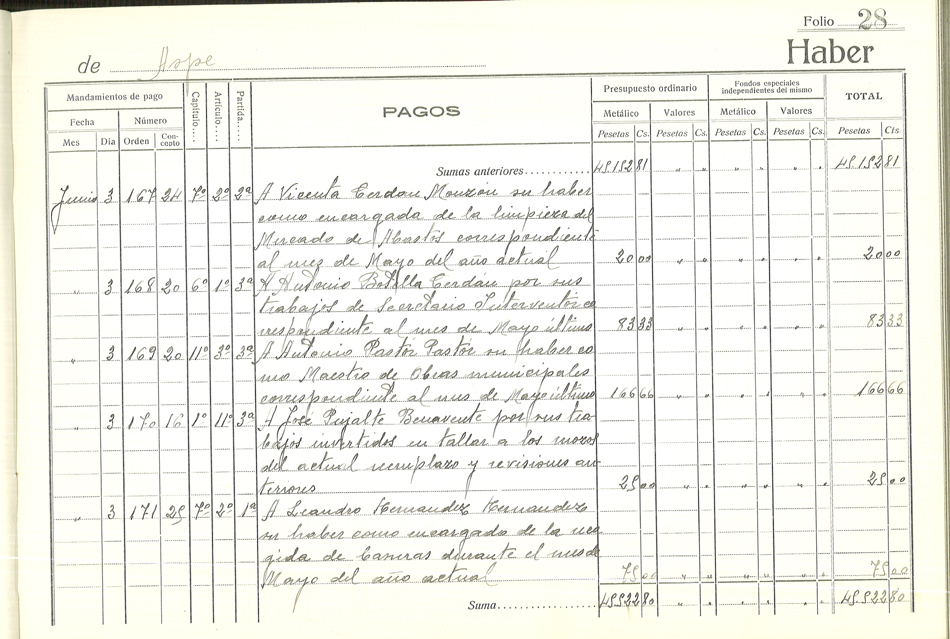 Folio 28
Haber
de Aspe
Mandamientos de pago Capítulo.... Artículo.... Partida.... PAGOS Presupuesto ordinario Fondos especiales independientes del mismo TOTAL
Fecha Número Metálico Valores Metálico Valores
Mes Día Orden Concepto Pesetas Cs. Pesetas Cs. Pesetas Cs. Pesetas Cs. Pesetas Cts.
Sumas anteriores............ 45152 81 " " " " " " 45152 81
Junio 3 167 24 7º 2º 2ª A Vicenta Cerdan Monzón su haber
como encargada de la limpieza del
Mercado de Abastos correspondiente
al mes de Mayo del año actual 20 00 " " " " " " 20 00
" 3 168 20 6º 1º 3ª A Antonio Botella Cerdan por sus
trabajos de Secretario Interventor co
rrespondiente al mes de Mayo último 83 33 " " " " " " 83 33
" 3 169 20 11º 3º 3ª A Antonio Pastor Pastor su haber co
mo Maestro de Obras municipales
correspondiente al mes de Mayo último 166 66 " " " " " " 166 66
" 3 170 16 1º 11º 3ª A José Pujalte Benavente por sus tra
bajos invertidos en tallar a los mozos
del actual reemplazo y revisiones an-
teriores 25 00 " " " " " " 25 00
" 3 171 25 7º 2º 1ª A Leandro Hernandez Hernandez
su haber como encargado de la reco
gida de basuras durante el mes de
Mayo del año actual 75 00 " " " " " " 75 00
Suma.................... 45522 80 " " " " " " 45522 80